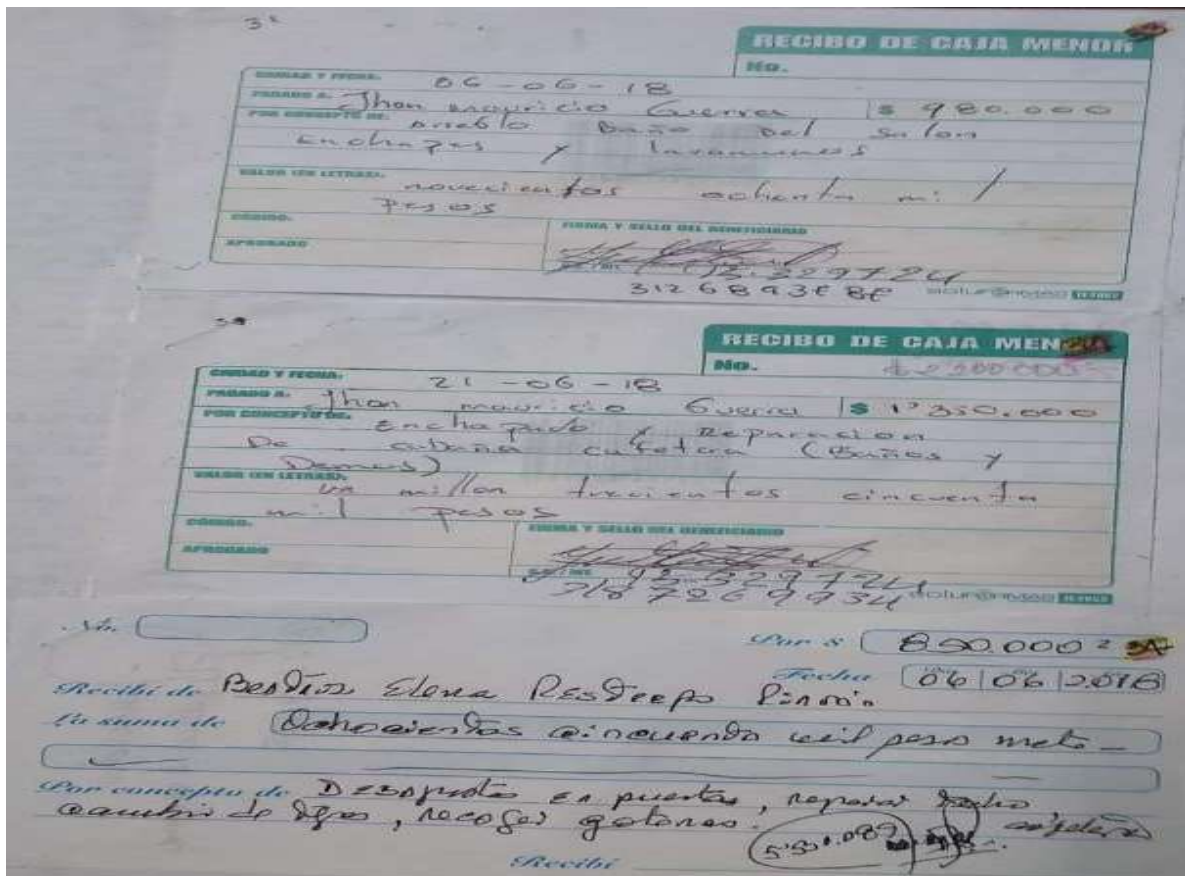 RECIBO DE CAJA MENOR
No.
CIUDAD Y FECHA: 06-06-18
PAGADO A: Jhon mauricio Guerra $ 980.000
POR CONCEPTO DE: Arreblo Baño Del Salon
Enchapes y lavamanos
VALOR (EN LETRAS): novecientos ochenta mil
Pesos
CÓDIGO: FIRMA Y SELLO DEL BENEFICIARIO
APROBADO
RECIBO DE CAJA MENOR
No.
CIUDAD Y FECHA: 21-06-18
PAGADO A: Jhon mauricio Guerra $ 1'350.000
POR CONCEPTO DE: Enchapado y Reparacion
De cabaña cafetera (Baños y
Demas)
VALOR (EN LETRAS): un millon trecientos cincuenta
mil pesos
CÓDIGO: FIRMA Y SELLO DEL BENEFICIARIO
APROBADO
No. Por $ 850.000
Fecha 06 06 2.018
Recibí de Elena Restrepo Pinzón
La suma de Ochocientos cincuenta mil peso
Por concepto de en puertas, reparar techo
cambio de, recoger goteras.
Recibí